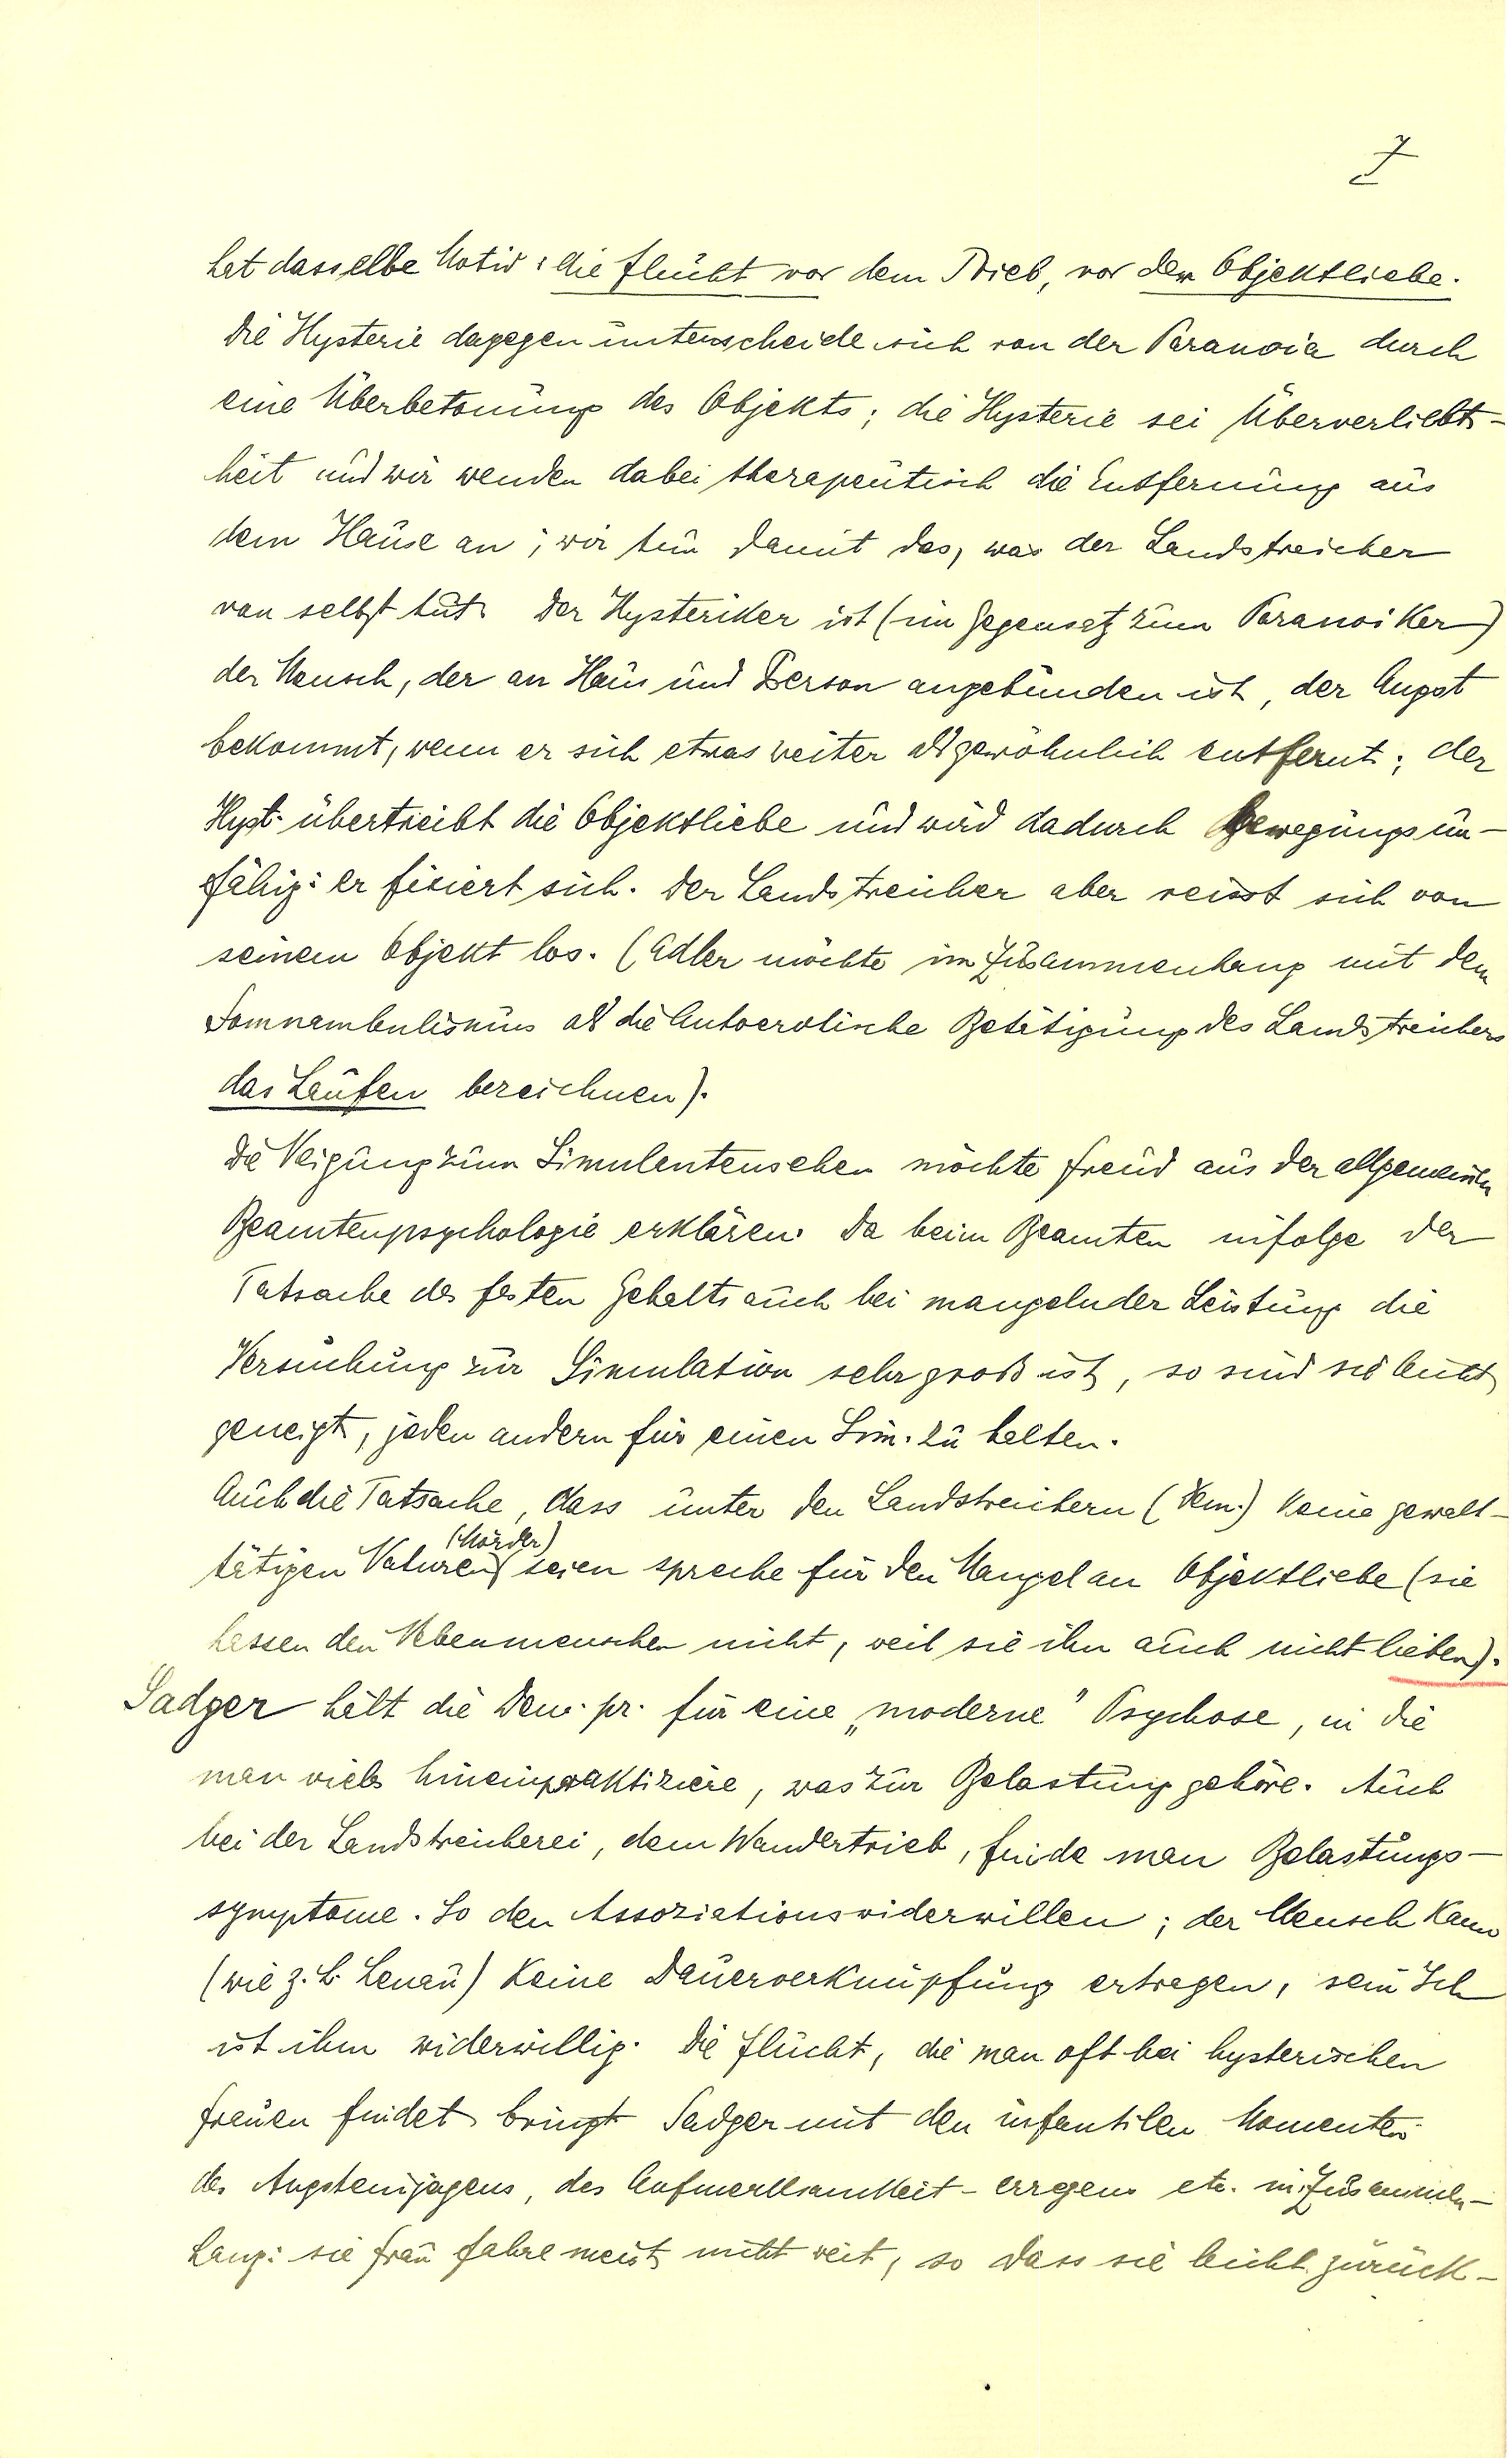 7
hat dasselbe Motiv: die Flucht vor dem Trieb, vor der Objektliebe.
Die Hysterie dagegen unterscheide sich von der Paranoia durch
eine Überbetonung des Objekts; die Hysterie sei Überverliebt-
heit und wir wenden dabei therapeutisch die Entfernung aus
dem Hause an; wir tun damit das, was der Landstreicher
von selbst tut. Der Hysteriker ist (im Gegensatz zum Paranoiker)
der Mensch, der an Haus und Person angebunden ist, der Angst
bekommt, wenn er sich etwas weiter als gewöhnlich entfernt; der
Hyst. übertreibt die Objektliebe und wird dadurch Bewegungsun-
fähig: er fixiert sich. Der Landstreicher aber reisst sich von
seinem Objekt los. (Adler möchte im Zusammenhang mit dem
Somnambulismus als die Autoerotische Betätigung des Landstreichers
das Laufen bezeichnen).
Die Neigung zum Simulantensehen möchte Freud aus der allgemeinen
Beamtenpsychologie erklären. Da beim Beamten infolge der
Tatsache des festen Gehalts auch bei mangelnder Leistung die
Versuchung zur Simulation sehr groß ist, so sind sie leicht
geneigt, jeden andern für einen Sim. zu halten.
Auch die Tatsache, dass unter den Landstreichern (Dem.) keine gewalt-
tätigen Naturen (Mörder) seien spreche für den Mangel an Objektliebe (sie
hassen den Nebenmenschen nicht, weil sie ihn auch nicht lieben).
Sadger hält die Dem. pr. für eine „moderne" Psychose, in die
man vieles hineinpraktiziere, was zur Belastung gehöre. Auch
bei der Landstreicherei, dem Wandertrieb, finde man Belastungs-
symptome. So den Assoziationswiderwillen; der Mensch kann
(wie z. B. Lenau) keine Dauerverknüpfung ertragen, sein Ich
ist ihm widerwillig. Die Flucht, die man oft bei hysterischen
Frauen findet bringt Sadger mit den infantilen Momenten
des Angsteinjagens, des Aufmerksamkeit-erregens etc. in Zusammen-
hang: die Frau fahre meist nicht weit, so dass sie leicht zurück-